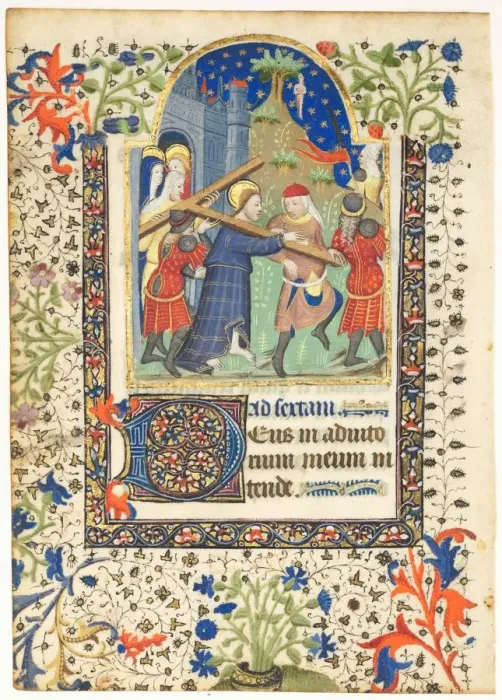 Ad sextam
Deus in adiuto
rium meum in
tende